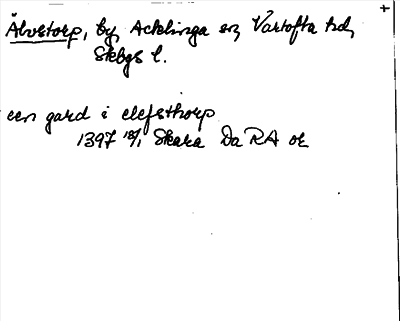 +
Älvstorp, by, Acklinga sn, Vartofta hd,
Skbgs l.
een gard i elefsthorp
1397 18/1 Skara Da RA or